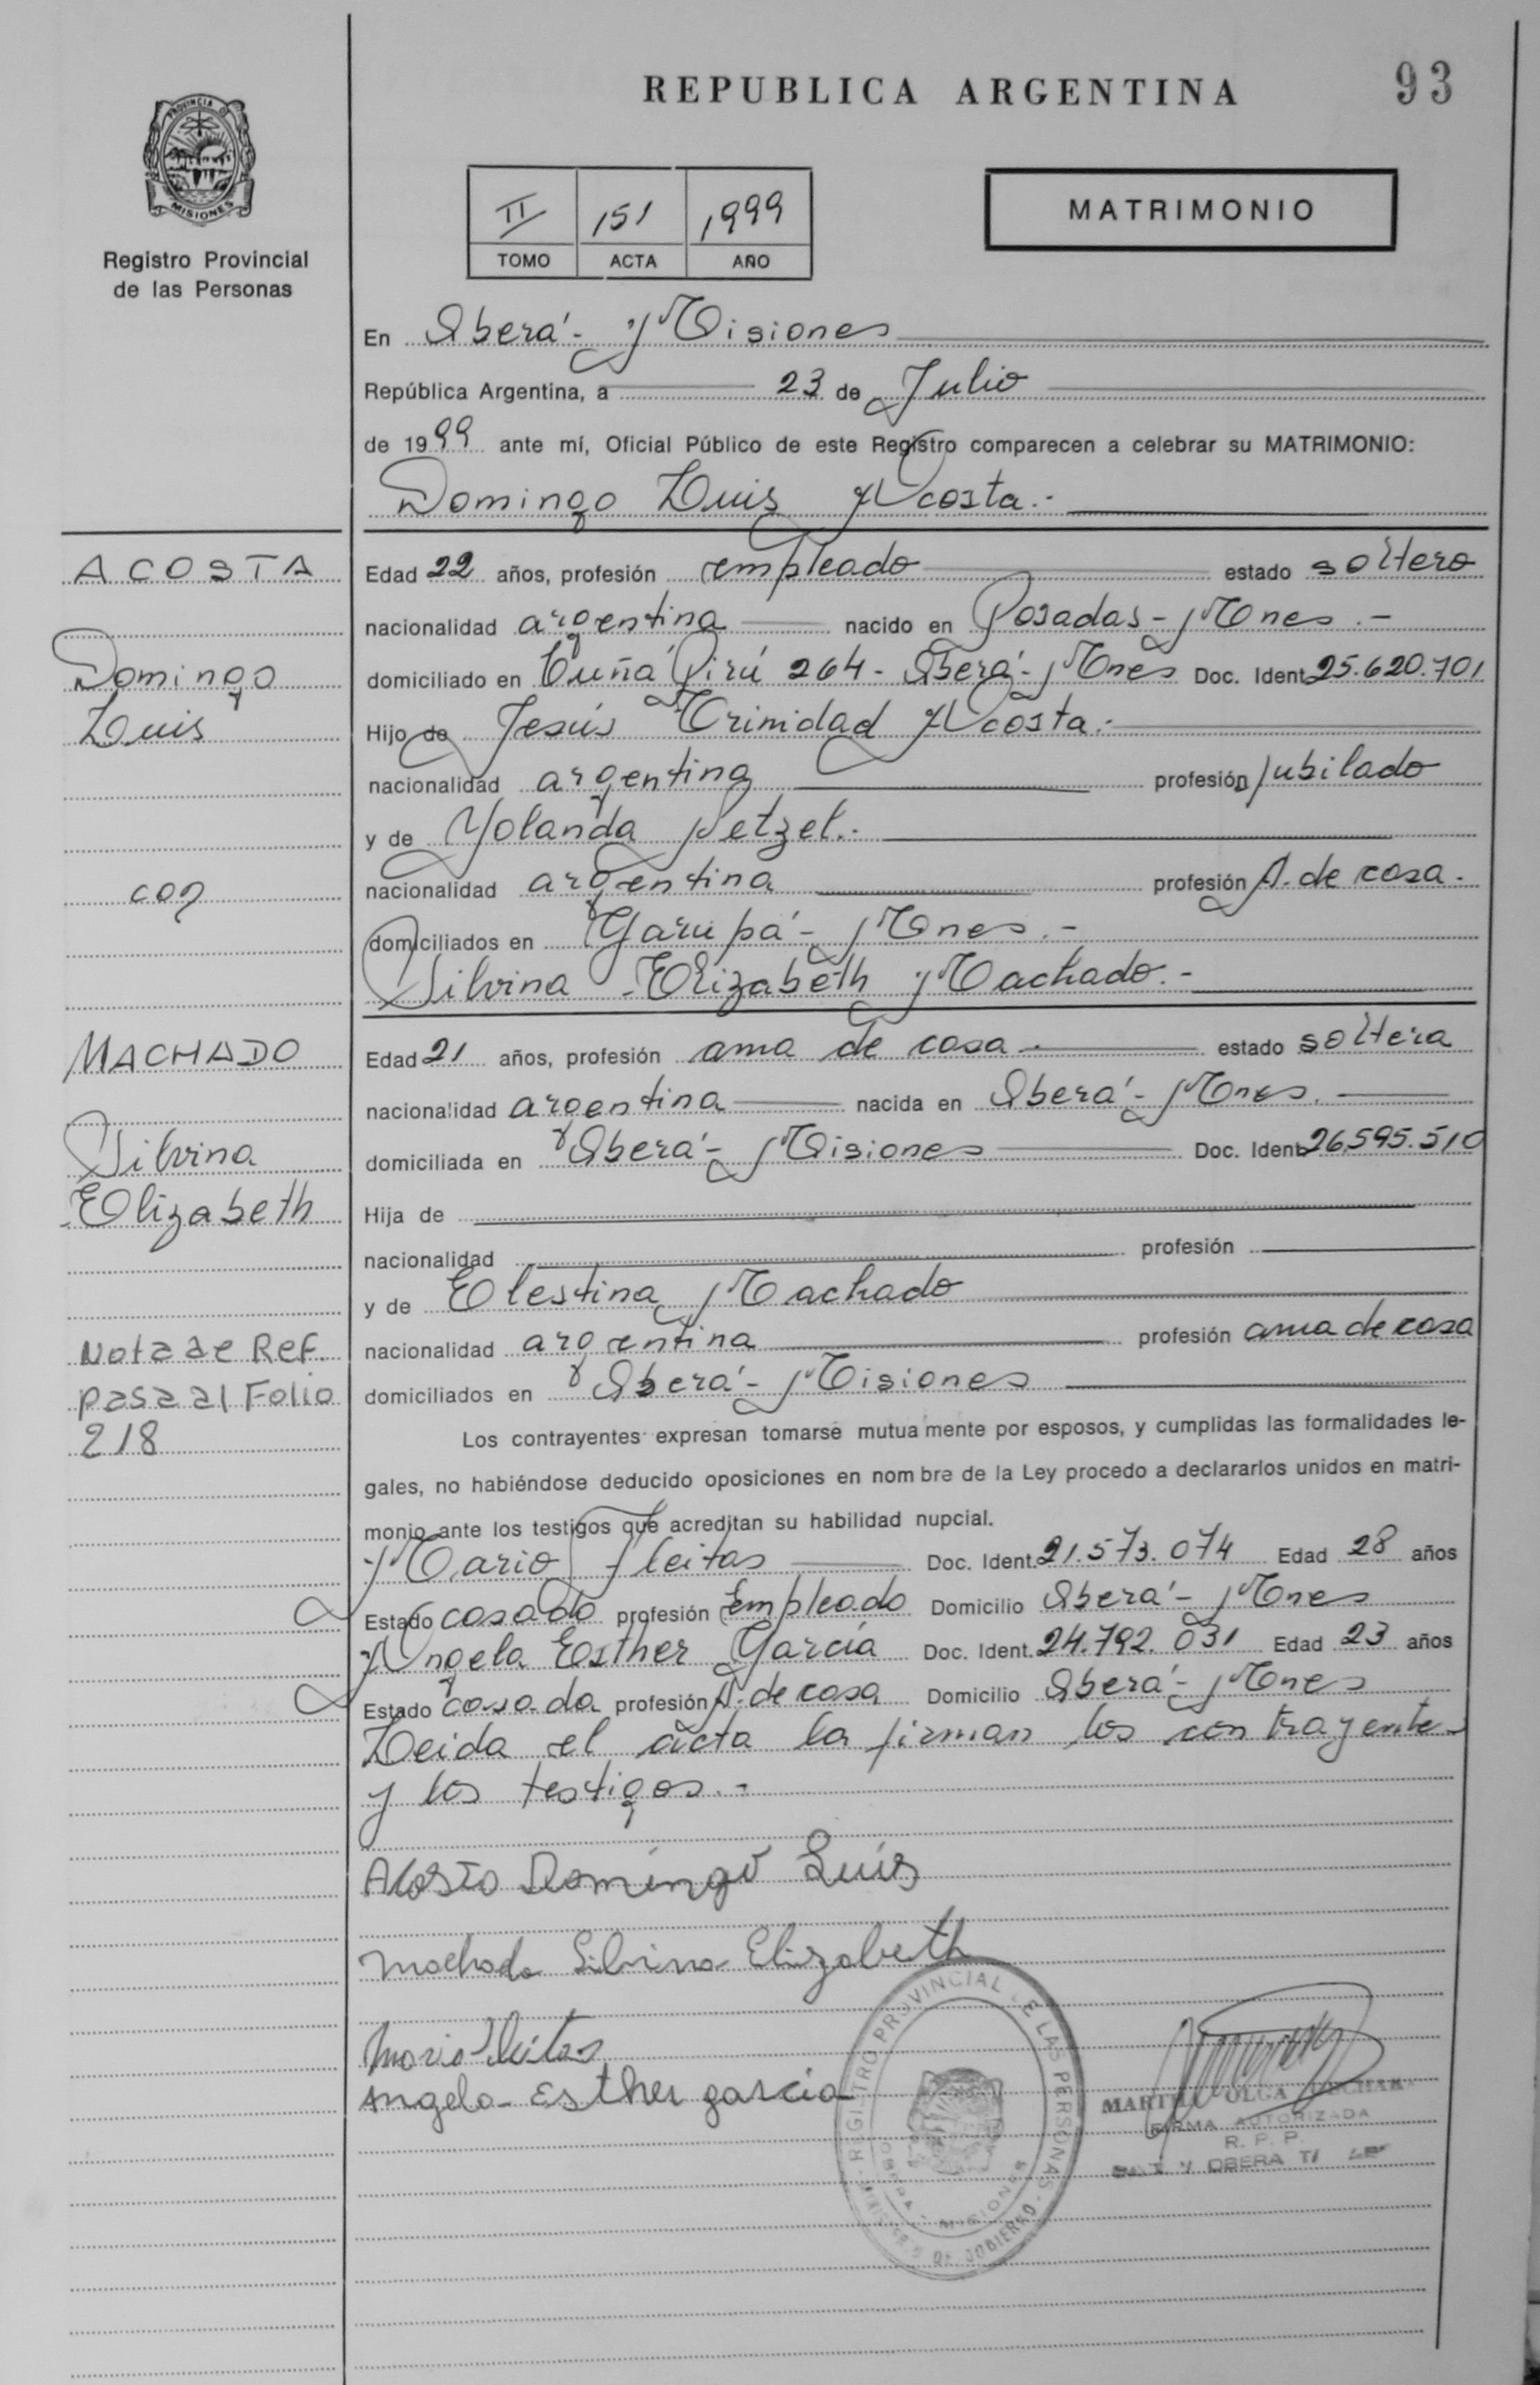 REPUBLICA ARGENTINA
93
PROVINCIA DE
MISIONES
Registro Provincial
de las Personas
II 151 1999
TOMO ACTA AÑO
MATRIMONIO
En Oberá - Misiones
República Argentina, a 23 de Julio
de 1999 ante mí, Oficial Público de este Registro comparecen a celebrar su MATRIMONIO:
Domingo Luis Acosta.-
ACOSTA
Domingo
Luis
con
MACHADO
Silvina
Elizabeth
Nota de Ref.
pasa al Folio
218
Edad 22 años, profesión empleado estado soltero
nacionalidad argentina nacido en Posadas - Mnes.-
domiciliado en Cuña Pirú 264 - Oberá - Mnes Doc. Ident 25.620.701
Hijo de Jesús Trinidad Acosta.-
nacionalidad argentina profesión jubilado
y de Yolanda Petzel.-
nacionalidad argentina profesión A. de casa.
domiciliados en Garupá - Mnes.-
Silvina Elizabeth Machado.-
Edad 21 años, profesión ama de casa estado soltera
nacionalidad argentina nacida en Oberá - Mnes.
domiciliada en Oberá - Misiones Doc. Ident 26.595.510
Hija de
nacionalidad profesión
y de Elestina Machado
nacionalidad argentina profesión ama de casa
domiciliados en Oberá - Misiones
Los contrayentes expresan tomarse mutuamente por esposos, y cumplidas las formalidades le-
gales, no habiéndose deducido oposiciones en nombre de la Ley procedo a declararlos unidos en matri-
monio ante los testigos que acreditan su habilidad nupcial.
Mario Fleitas Doc. Ident. 21.573.074 Edad 28 años
Estado casado profesión Empleado Domicilio Oberá - Mnes
Angela Esther García Doc. Ident. 24.792.031 Edad 23 años
Estado casada profesión A. de casa Domicilio Oberá - Mnes
Leida el acta la firman los contrayentes
y los testigos.-
Acosta Domingo Luis
Machado Silvina Elizabeth
Mario Fleitas
Angela Esther garcia
REGISTRO PROVINCIAL DE LAS PERSONAS
MINISTERIO DE GOBIERNO
OBERA - MISIONES
OLGA
FIRMA AUTORIZADA
R. P. P.
OBERA